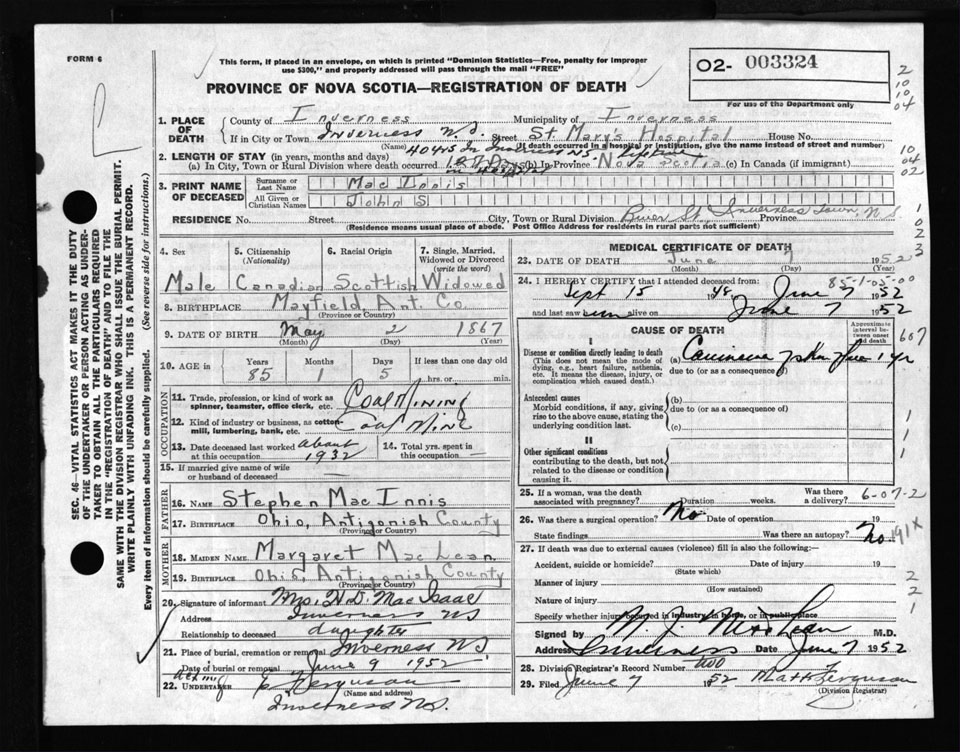 FORM 6
This form, if placed in an envelope, on which is printed "Dominion Statistics—Free, penalty for improper
use $300," and properly addressed will pass through the mail "FREE"
O2- 003324
PROVINCE OF NOVA SCOTIA—REGISTRATION OF DEATH
For use of the Department only
2
10
10
04
1. PLACE OF DEATH
County of Inverness Municipality of Inverness
If in City or Town Inverness N.S. Street St Marys Hospital House No.
(Name) (If death occurred in a hospital or institution, give the name instead of street and number)
10
04
02
2. LENGTH OF STAY (in years, months and days) 40 yrs in Inverness NS.
(a) In City, Town or Rural Division where death occurred Days in Hospital (b) In Province Nova Scotia (c) In Canada (if immigrant)
3. PRINT NAME OF DECEASED
Surname or Last Name Mac Innis
All Given or Christian Names John S
RESIDENCE No. Street City, Town or Rural Division River St. Inverness Town, Province N S
(Residence means usual place of abode. Post Office Address for residents in rural parts not sufficient)
1
0
2
3
4. Sex 5. Citizenship (Nationality) 6. Racial Origin 7. Single, Married, Widowed or Divorced (write the word)
Male Canadian Scottish Widowed
8. BIRTHPLACE Mayfield, Ant. Co.
(Province or Country)
9. DATE OF BIRTH May 2 1867
(Month) (Day) (Year)
10. AGE in Years Months Days If less than one day old
85 1 5 hrs. or min.
OCCUPATION
11. Trade, profession, or kind of work as spinner, teamster, office clerk, etc. Coal Mining
12. Kind of industry or business, as cotton mill, lumbering, bank, etc. Coal Mine
13. Date deceased last worked at this occupation about 1932 14. Total yrs. spent in this occupation
15. If married give name of wife or husband of deceased —
FATHER
16. NAME Stephen Mac Innis
17. BIRTHPLACE Ohio, Antigonish County
(Province or Country)
MOTHER
18. MAIDEN NAME Margaret Mac Lean
19. BIRTHPLACE Ohio, Antigonish County
(Province or Country)
20. Signature of informant Mrs. H.D. Mac Isaac
Address Inverness NS
Relationship to deceased daughter
21. Place of burial, cremation or removal Inverness NS
Date of burial or removal June 9 1952
22. UNDERTAKER acting E Ferguson
(Name and address)
Inverness N.S.
MEDICAL CERTIFICATE OF DEATH
23. DATE OF DEATH June 7 1952
(Month) (Day) (Year)
85-1-05-00
24. I HEREBY CERTIFY that I attended deceased from:
Sept 15 1948 June 7 1952
and last saw alive on June 7 1952
CAUSE OF DEATH
Approximate interval between onset and death
607
I
Disease or condition directly leading to death (a) 1 yr
(This does not mean the mode of dying, e.g., heart failure, asthenia, etc. It means the disease, injury, or complication which caused death.)
due to (or as a consequence of)
Antecedent causes (b)
Morbid conditions, if any, giving rise to the above cause, stating the underlying condition last.
due to (or as a consequence of)
(c)
II
Other significant conditions
contributing to the death, but not related to the disease or condition causing it.
1
1
1
25. If a woman, was the death associated with pregnancy? Duration weeks. Was there a delivery?
6-07-2
26. Was there a surgical operation? No Date of operation 19
State findings Was there an autopsy? No
191X
27. If death was due to external causes (violence) fill in also the following:—
Accident, suicide or homicide? Date of injury 19
(State which)
Manner of injury
(How sustained)
Nature of injury
Specify whether injury occurred in industry, in home, or in public place
2
2
1
Signed by N. J. MacLean M.D.
Address Inverness Date June 7 1952
28. Division Registrar's Record Number two
29. Filed June 7 1952 Matt Ferguson
(Division Registrar)
SEC. 46—VITAL STATISTICS ACT MAKES IT THE DUTY
OF THE UNDERTAKER OR PERSON ACTING AS UNDER-
TAKER TO OBTAIN ALL THE PARTICULARS REQUIRED
IN THE "REGISTRATION OF DEATH" AND TO FILE THE
SAME WITH THE DIVISION REGISTRAR WHO SHALL ISSUE THE BURIAL PERMIT.
WRITE PLAINLY WITH UNFADING INK. THIS IS A PERMANENT RECORD.
Every item of information should be carefully supplied. (See reverse side for instructions.)